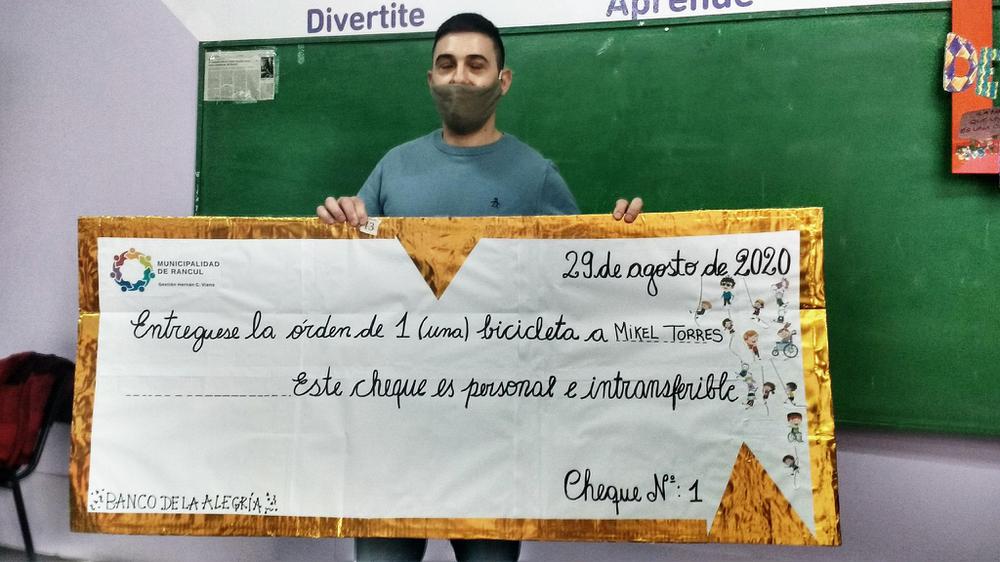 Divertite
Aprende
MUNICIPALIDAD
DE RANCUL
Gestión Hernán C. Viano
13
29 de agosto de 2020
Entreguese la órden de 1 (una) bicicleta a MIKEL TORRES
Este cheque es personal e intransferible
Cheque Nº: 1
BANCO DE LA ALEGRÍA